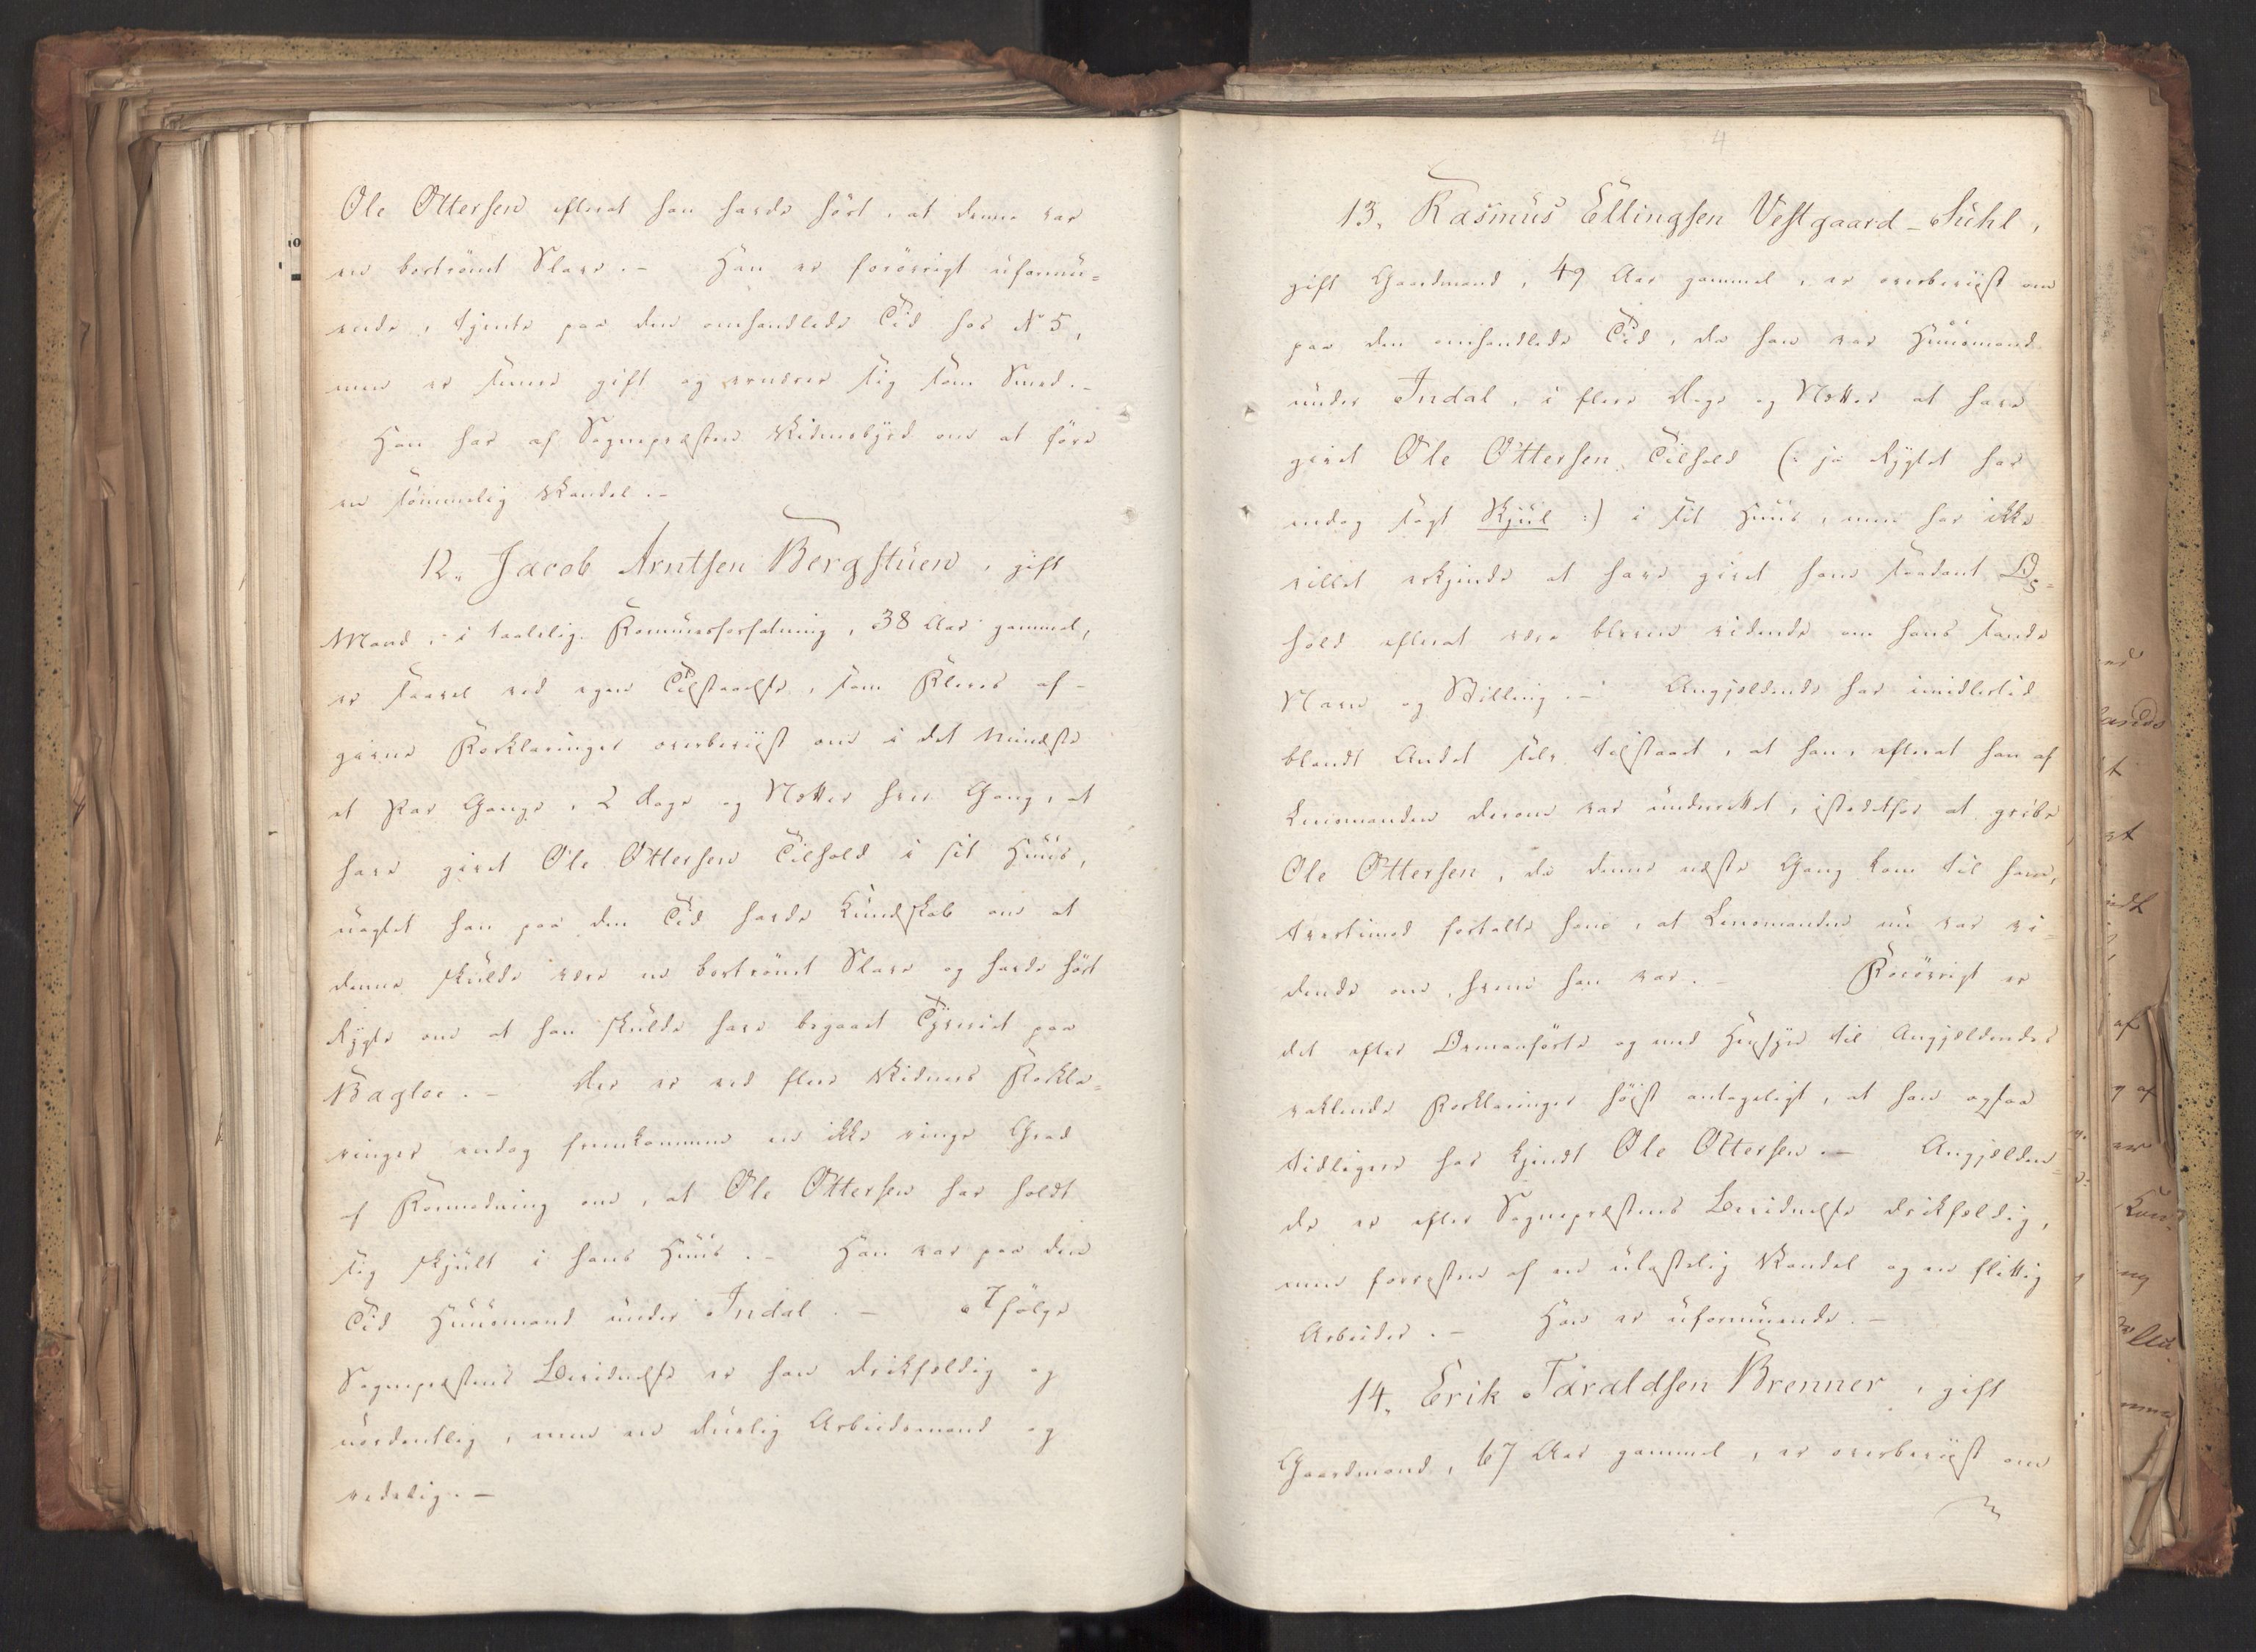 Ole Ottersen efterat han havde hørt, at denne var
en bortrömt Slave. – Han er forövrigt uformu-
ende, tjente paa den omhandlede Tid hos No 5,
men er senere gift og ernærer sig som Smed. –
Han har af Sognepræsten Vidnesbyrd om at före
en sömmelig Vandel. –
12, Jacob Arntsen Bergstuen, gift
Mand, i taalelig Formuesforfatning, 38 Aar gammel,
er saavel ved egen Tilstaaelse, som Fleres af-
givne Forklaringer overbeviist om i det mindste
et Par Gange, 2 Dage og Nætter hver Gang, at
have givet Ole Ottersen Tilhold i sit Huus,
uagtet han paa den Tid havde Kundskab om at
denne skulde være en bortrömt Slave og havde hört
Rygte om at han skulde have begaaet Tyveriet paa
Bagloe. – Der er ved flere Vidners Forkla-
ringer endog fremkommen en ikke ringe Grad
af Formodning om, at Ole Ottersen har holdt
sig skjult i hans Huus. – Han var paa den
Tid Huusmand under Indal. – Ifölge
Sognepræstens Bevidnelse er han drikfældig og
uordentlig, men en duelig Arbeidsmand og
redelig. –
4
13, Rasmus Ellingsen Vestgaard-Suhl,
gift Gaardmand, 49 Aar gammel, er overbeviist om
paa den omhandlede Tid, da han var Huusmand
under Indal, i flere Dage og Nætter at have
givet Ole Ottersen Tilhold (: ja Rygtet har
endog sagt Skjul :) i sit Huus, men har ikke
villet erkjende at have givet ham saadant Op-
hold efterat være bleven vidende om hans sande
Navn og Stilling. – Angjældende har imidlertid
blandt Andet selv tilstaaet, at han, efterat han af
Lensmanden derom var underrettet, istedetfor at gribe
Ole Ottersen, da denne næste Gang kom til ham,
tvertimod fortalte ham, at Lensmanden nu var vi-
dende om, hvem han var. – Forövrigt er
det efter Ovenanförte og med Hensyn til Angjældendes
vaklende Forklaringer höist antageligt, at han ogsaa
tidligere har kjendt Ole Ottersen. – Angjælden-
de er efter Sognepræstens Bevidnelse drikfældig,
men forresten af en ulastelig Vandel og en flittig
Arbeider. – Han er uformuende. –
14, Erik Taraldsen Brenner, gift
Gaardmand, 67 Aar gammel, er overbeviist om